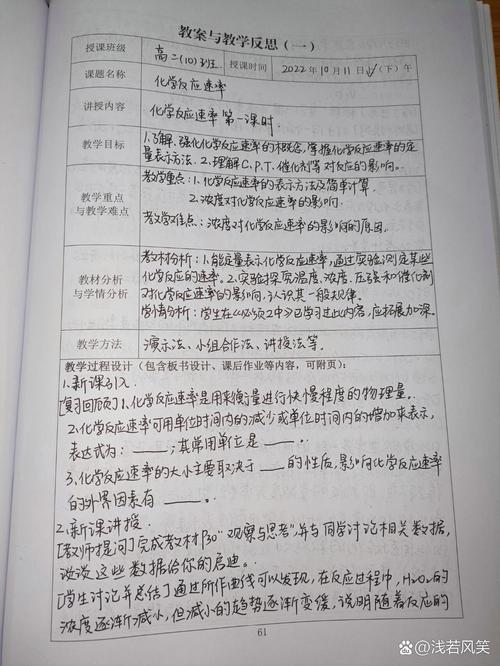 教案与教学反思（一）
授课班级 高二(10)班 授课时间 2022年10月11日上(下)午
课题名称 化学反应速率
讲授内容 化学反应速率 第一课时.
教学目标 1.了解、强化化学反应速率的概念,掌握化学反应速率的定
量表示方法. 2.理解C.P.T.催化剂等对反应的影响.
教学重点与教学难点 教学重点:1.化学反应速率的表示方法及简单计算.
2.浓度对化学反应速率的影响.
教学难点:浓度对化学反应速率的影响的原因.
教材分析与学情分析 教材分析:1.能定量表示化学反应速率,通过实验测定某些
化学反应的速率. 2.实验探究温度、浓度、压强和催化剂
对化学反应速率的影响,认识其一般规律.
学情分析:学生在《必修2中》已学习过此内容,应拓展加深.
教学方法 演示法、小组合作法、讲授法等.
教学过程设计（包含板书设计、课后作业等内容，可附页）：
1.新课引入.
[复习回顾]1.化学反应速率是用来衡量进行快慢程度的物理量.
2.化学反应速率可用单位时间内的减少或单位时间内的增加来表示,
表达式为: ____;其常用单位是____.
3.化学反应速率的大小主要取决于____的性质,影响化学反应速率
的外界因素有____.
2.新课讲授.
[教师提问]完成教材P30"观察与思考"并与同学讨论相关数据,
谈谈这些数据给你的启迪.
[学生讨论并总结]通过所作曲线可以发现,在反应过程中,H₂O₂的
浓度逐渐减小,但减小的趋势逐渐变缓,说明随着反应的
61
@浅若风笑